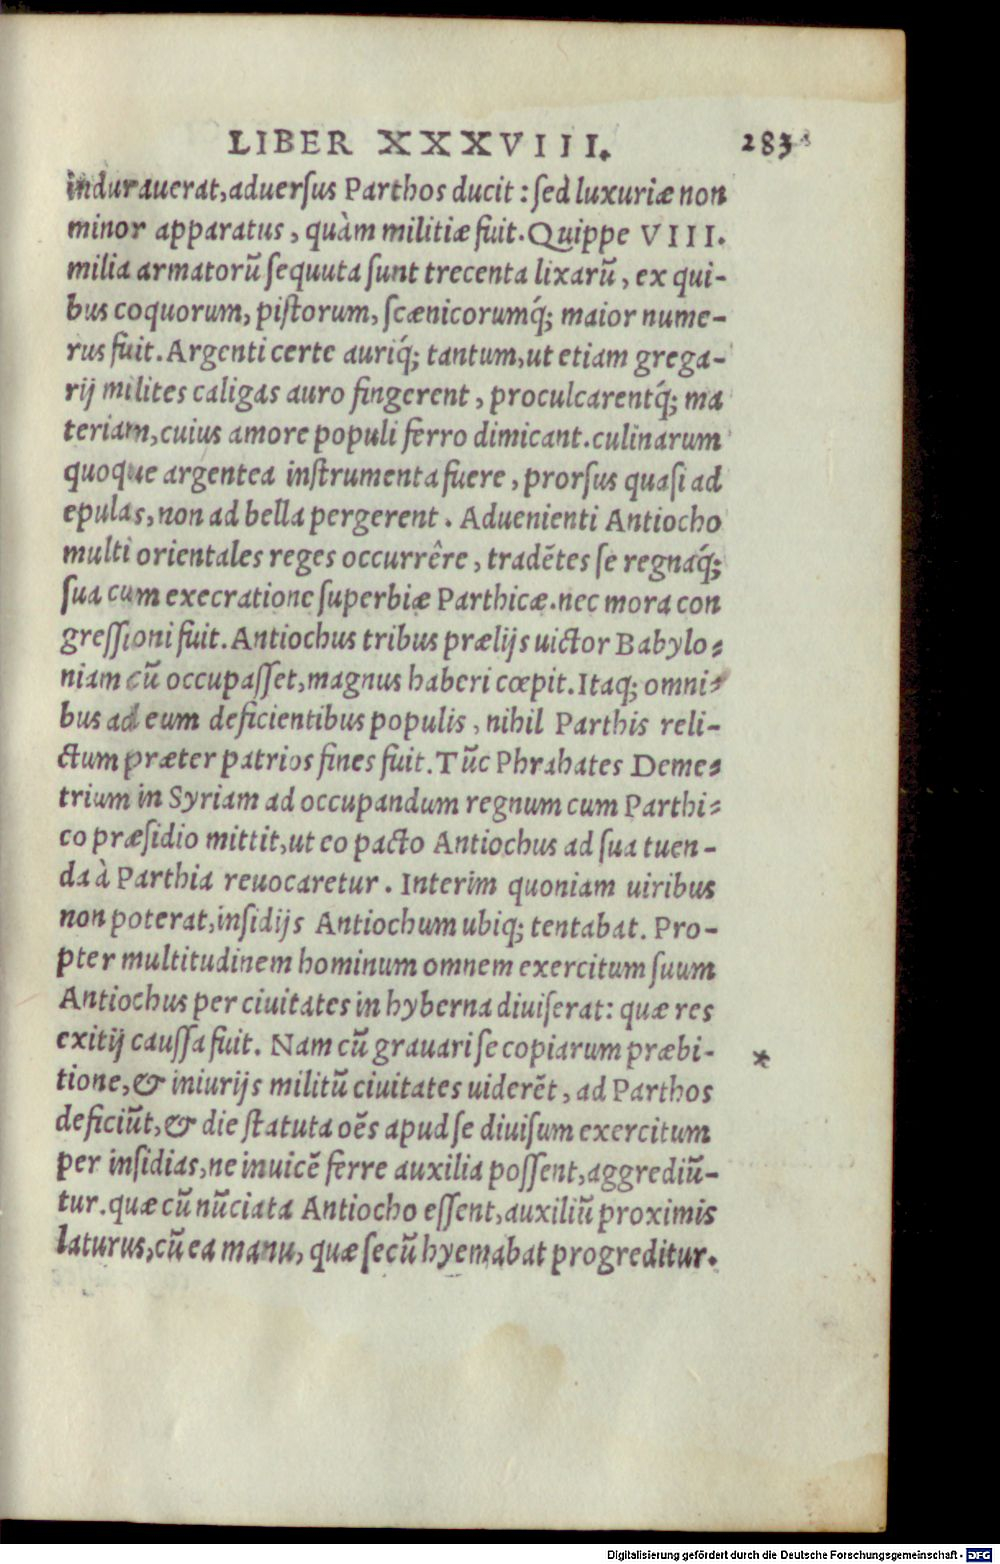 LIBER XXXVIII. 283
indurauerat,aduersus Parthos ducit : sed luxuriæ non
minor apparatus , quàm militiæ fuit. Quippe VIII.
milia armatorū sequuta sunt trecenta lixarū , ex qui-
bus coquorum, pistorum, scænicorumq́; maior nume-
rus fuit. Argenti certe auriq́; tantum,ut etiam grega-
rij milites caligas auro fingerent , proculcarentq́; ma
teriam,cuius amore populi ferro dimicant.culinarum
quoque argentea instrumenta fuere , prorsus quasi ad
epulas,non ad bella pergerent . Aduenienti Antiocho
multi orientales reges occurrêre , tradētes se regnaq́;
sua cum execratione superbiæ Parthicæ.nec mora con
gressioni fuit. Antiochus tribus prælijs uictor Babylo-
niam cū occupasset,magnus haberi cœpit. Itaq; omni-
bus ad eum deficientibus populis , nihil Parthis reli-
ctum præter patrios fines fuit. Tūc Phrahates Deme-
trium in Syriam ad occupandum regnum cum Parthi-
co præsidio mittit,ut eo pacto Antiochus ad sua tuen-
da à Parthia reuocaretur . Interim quoniam uiribus
non poterat,insidijs Antiochum ubiq; tentabat. Pro-
pter multitudinem hominum omnem exercitum suum
Antiochus per ciuitates in hyberna diuiserat: quæ res
exitij caussa fuit. Nam cū grauari se copiarum præbi- *
tione,& iniurijs militū ciuitates uiderēt , ad Parthos
deficiūt,& die statuta oēs apud se diuisum exercitum
per insidias,ne inuicē ferre auxilia possent,aggrediū-
tur.quæ cū nūciata Antiocho essent,auxiliū proximis
laturus,cū ea manu, quæ secū hyemabat progreditur.
Digitalisierung gefördert durch die Deutsche Forschungsgemeinschaft - DFG